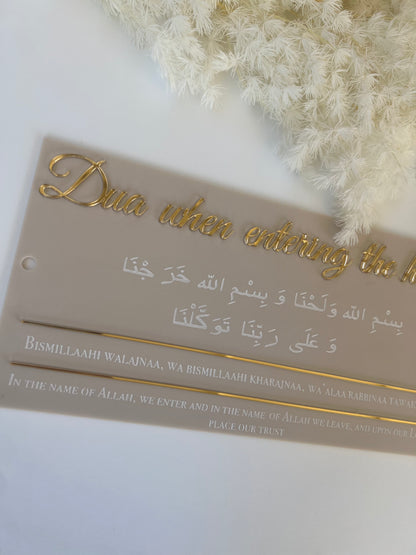 Dua when entering the
بِسْمِ الله وَلَجْنَا وَ بِسْمِ الله خَرَ جْنَا
وَ عَلَى رَبِّنَا تَوَكَّلْنَا
Bismillaahi walajnaa, wa bismillaahi kharajnaa, wa'alaa rabbinaa
In the name of Allah, we enter and in the name of Allah we leave, and upon our
place our trust